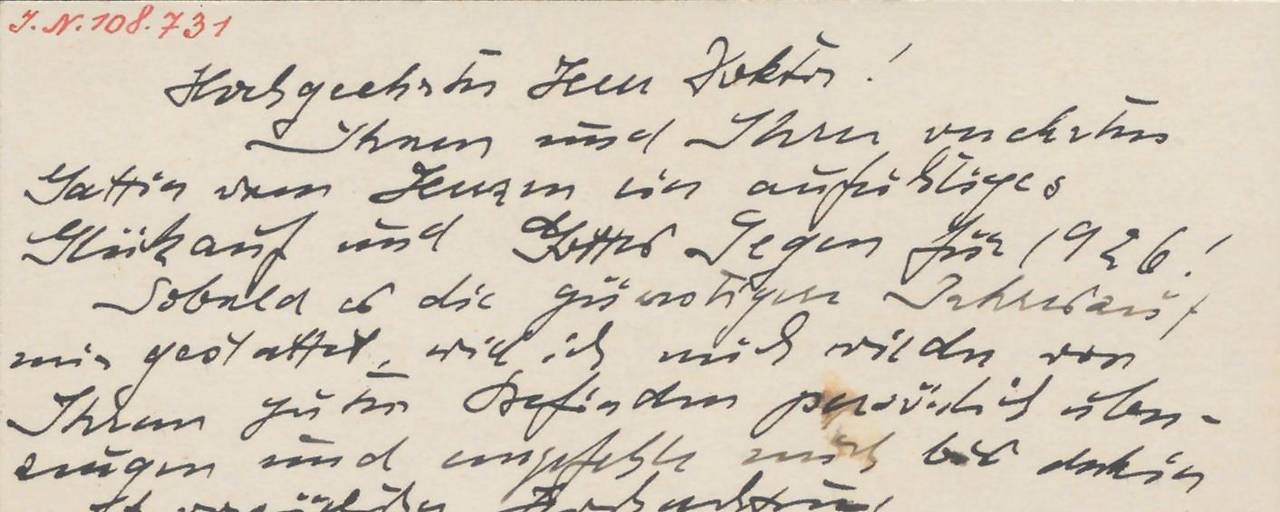 J. N. 108.731
Hochgeehrter Herr Doktor!
Ihnen und Ihrer verehrten
Gattin vom Herzen ein aufrichtiges
Glückauf und Gottes Segen für 1926!
Sobald es die günstigere
mir gestattet, will ich mich wieder von
Ihrem guten Befinden persönlich über-
zeugen und empfehle mich bis dahin
Hochachtung